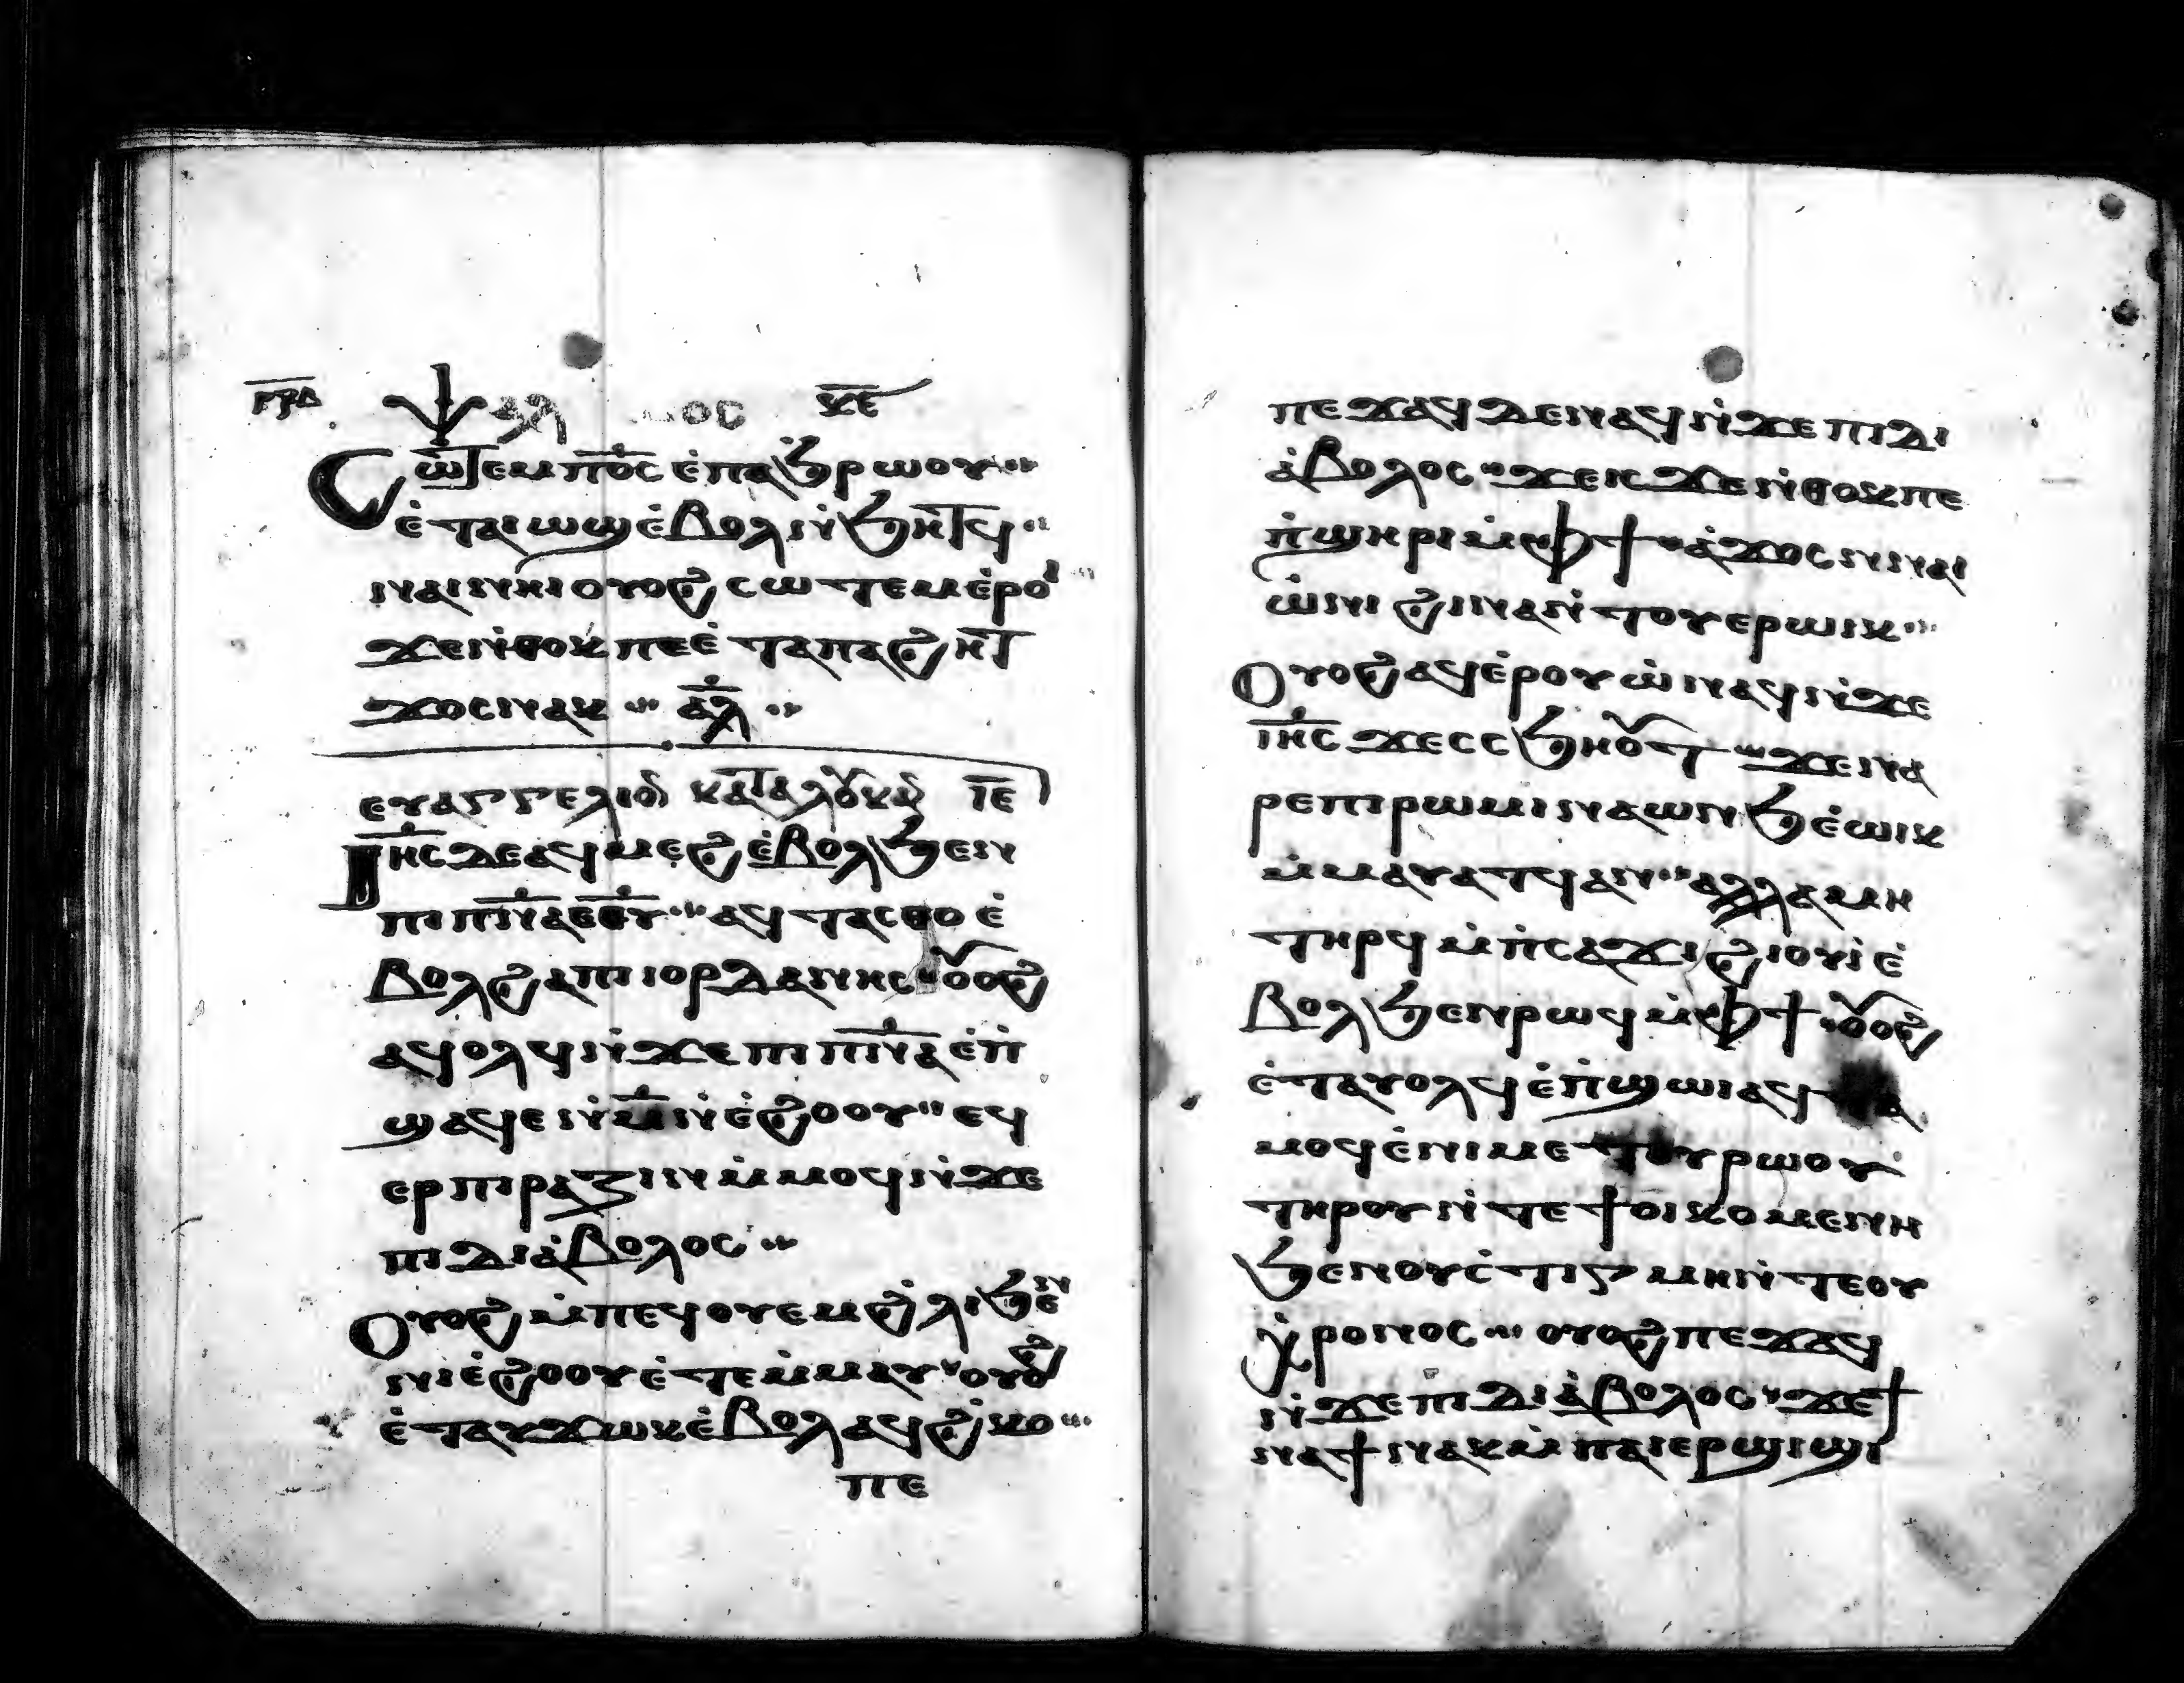 ⲯⲁⲗ ⲟⲥ ⲕ̅ⲉ̅
Ⲥⲱⲧⲉⲙ ⲡ̅ⲟ̅ⲥ̅ ⲉ̀ⲡⲁϧⲣⲱⲟⲩ
ⲉ̀ⲧⲁⲓⲱϣ ⲉ̀ⲃⲟⲗ ⲛ̀ϧⲏⲧϥ
ⲛⲁⲓ ⲛⲏⲓ ⲟⲩⲟϩ ⲥⲱⲧⲉⲙ ⲉ̀ⲣⲟⲓ
ϫⲉ ⲛ̀ⲑⲟⲕ ⲡⲉ ⲉ̀ⲧⲁ ⲡⲁϩⲏⲧ
ϫⲟⲥ ⲛⲁⲕ ⲁ̅ⲗ̅
ⲉⲩⲁⲅⲅⲉⲗⲓⲟⲛ ⲕⲁⲧⲁ ⲗⲟⲩⲕⲁⲛ ⲓ̅ⲉ̅
Ⲓⲏ̅ⲥ̅ ⲇⲉ ⲁϥⲙⲉϩ ⲉ̀ⲃⲟⲗ ϧⲉⲛ
ⲡⲓⲡ̅ⲛ̅ⲁ̅ ⲉ̅ⲑ̅ⲩ̅ ⲁϥⲧⲁⲥⲑⲟ ⲉ̀
ⲃⲟⲗ ϩⲁ ⲡⲓⲓⲟⲣⲇⲁⲛⲏⲥ ⲟⲩⲟϩ
ⲁϥⲟⲗϥ ⲛ̀ϫⲉ ⲡⲓⲡ̅ⲛ̅ⲁ̅ ⲉ̀ⲡ̀
ϣⲁϥⲉ ⲛ̀ⲙ̅ ⲛ̀ⲉ̀ϩⲟⲟⲩ ⲉϥ
ⲉⲣⲡⲓⲣⲁⲍⲓⲛ ⲙ̀ⲙⲟϥ ⲛ̀ϫⲉ
ⲡⲓⲇⲓⲁ̀ⲃⲟⲗⲟⲥ
Ⲟⲩⲟϩ ⲙ̀ⲡⲉϥⲟⲩⲉⲙ ϩ̀ⲗⲓ ϧⲉⲛ
ⲛⲓⲉ̀ϩⲟⲟⲩ ⲉ̀ⲧⲉⲙ̀ⲙⲁⲩ ⲟⲩⲟϩ
ⲉ̀ⲧⲁⲩϫⲱⲕ ⲉ̀ⲃⲟⲗ ⲁϥϩ̀ⲕⲟ
ⲡⲉ
ⲡⲉϫⲁϥ ⲇⲉ ⲛⲁϥ ⲛ̀ϫⲉ ⲡⲓⲇⲓ
ⲁ̀ⲃⲟⲗⲟⲥ ϫⲉ ⲓⲥϫⲉ ⲛ̀ⲑⲟⲕ ⲡⲉ
ⲡ̀ϣⲏⲣⲓ ⲙ̀ⲫϯ ⲁ̀ϫⲟⲥ ⲛ̀ⲛⲁⲓ
ⲱ̀ⲛⲓ ϩⲓⲛⲁ ⲛ̀ⲧⲟⲩⲉⲣⲱⲓⲕ
Ⲟⲩⲟϩ ⲁϥⲉ̀ⲣⲟⲩⲱ̀ ⲛⲁϥ ⲛ̀ϫⲉ
ⲓⲏ̅ⲥ̅ ϫⲉ ⲥⲥϧⲏⲟⲩⲧ ϫⲉ ⲛⲁ
ⲣⲉ ⲡⲓⲣⲱⲙⲓ ⲛⲁⲱⲛϧ ⲉ̀ⲱⲓⲕ
ⲙ̀ⲙⲁⲩⲁⲧϥ ⲁⲛ ⲁⲗⲗⲁ ⲙⲏ
ⲧⲏⲣϥ ⲙ̀ⲡ̀ⲥⲁϫⲓ ϩⲓⲟⲩⲓ̀ ⲉ̀
ⲃⲟⲗ ϧⲉⲛ ⲣⲱϥ ⲙ̀ⲫϯ ⲟⲩⲟϩ
ⲉ̀ⲧⲁⲩⲟⲗϥ ⲉ̀ⲡ̀ϣⲱⲓ ⲁϥ
ⲙⲟϥ ⲉ̀ⲛⲓⲙⲉⲧⲟⲩⲣⲱⲟⲩ
ⲧⲏⲣⲟⲩ ⲛ̀ⲧⲉ ϯⲟⲓⲕⲟⲙⲉⲛⲏ
ϧⲉⲛ ⲟⲩⲥ̀ⲧⲓⲅⲙⲏ ⲛ̀ⲧⲉ ⲟⲩ
ⲭ̀ⲣⲟⲛⲟⲥ ⲟⲩⲟϩ ⲡⲉϫⲁϥ
ⲛ̀ϫⲉ ⲡⲓⲇⲓⲁ̀ⲃⲟⲗⲟⲥ ϫⲉ ϯ
ⲛⲁϯ ⲛⲁⲕ ⲙ̀ⲡⲁⲓⲉⲣϣⲓϣⲓ